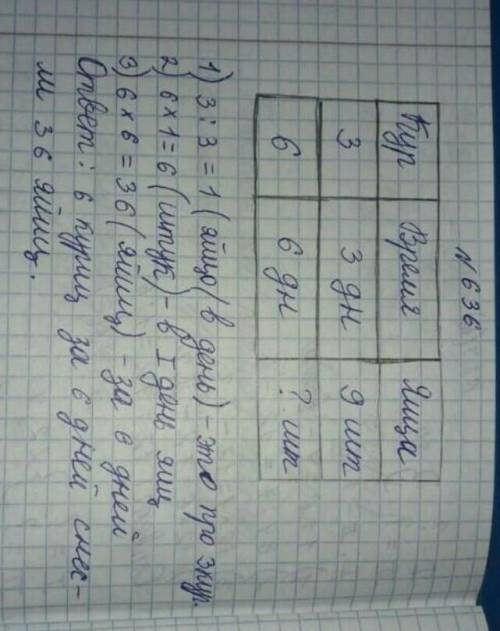 N 636
Кур Время Яйца
3 3 дн 9 шт
6 6 дн ? шт
1) 3 : 3 = 1 (яйцо/в день) - это про 3 кур.
2) 6 x 1 = 6 (штук) - в 1 день яиц
3) 6 x 6 = 36 (яйиц) - за 6 дней
Ответ: 6 куриц за 6 дней снес-
ли 36 яйиц.